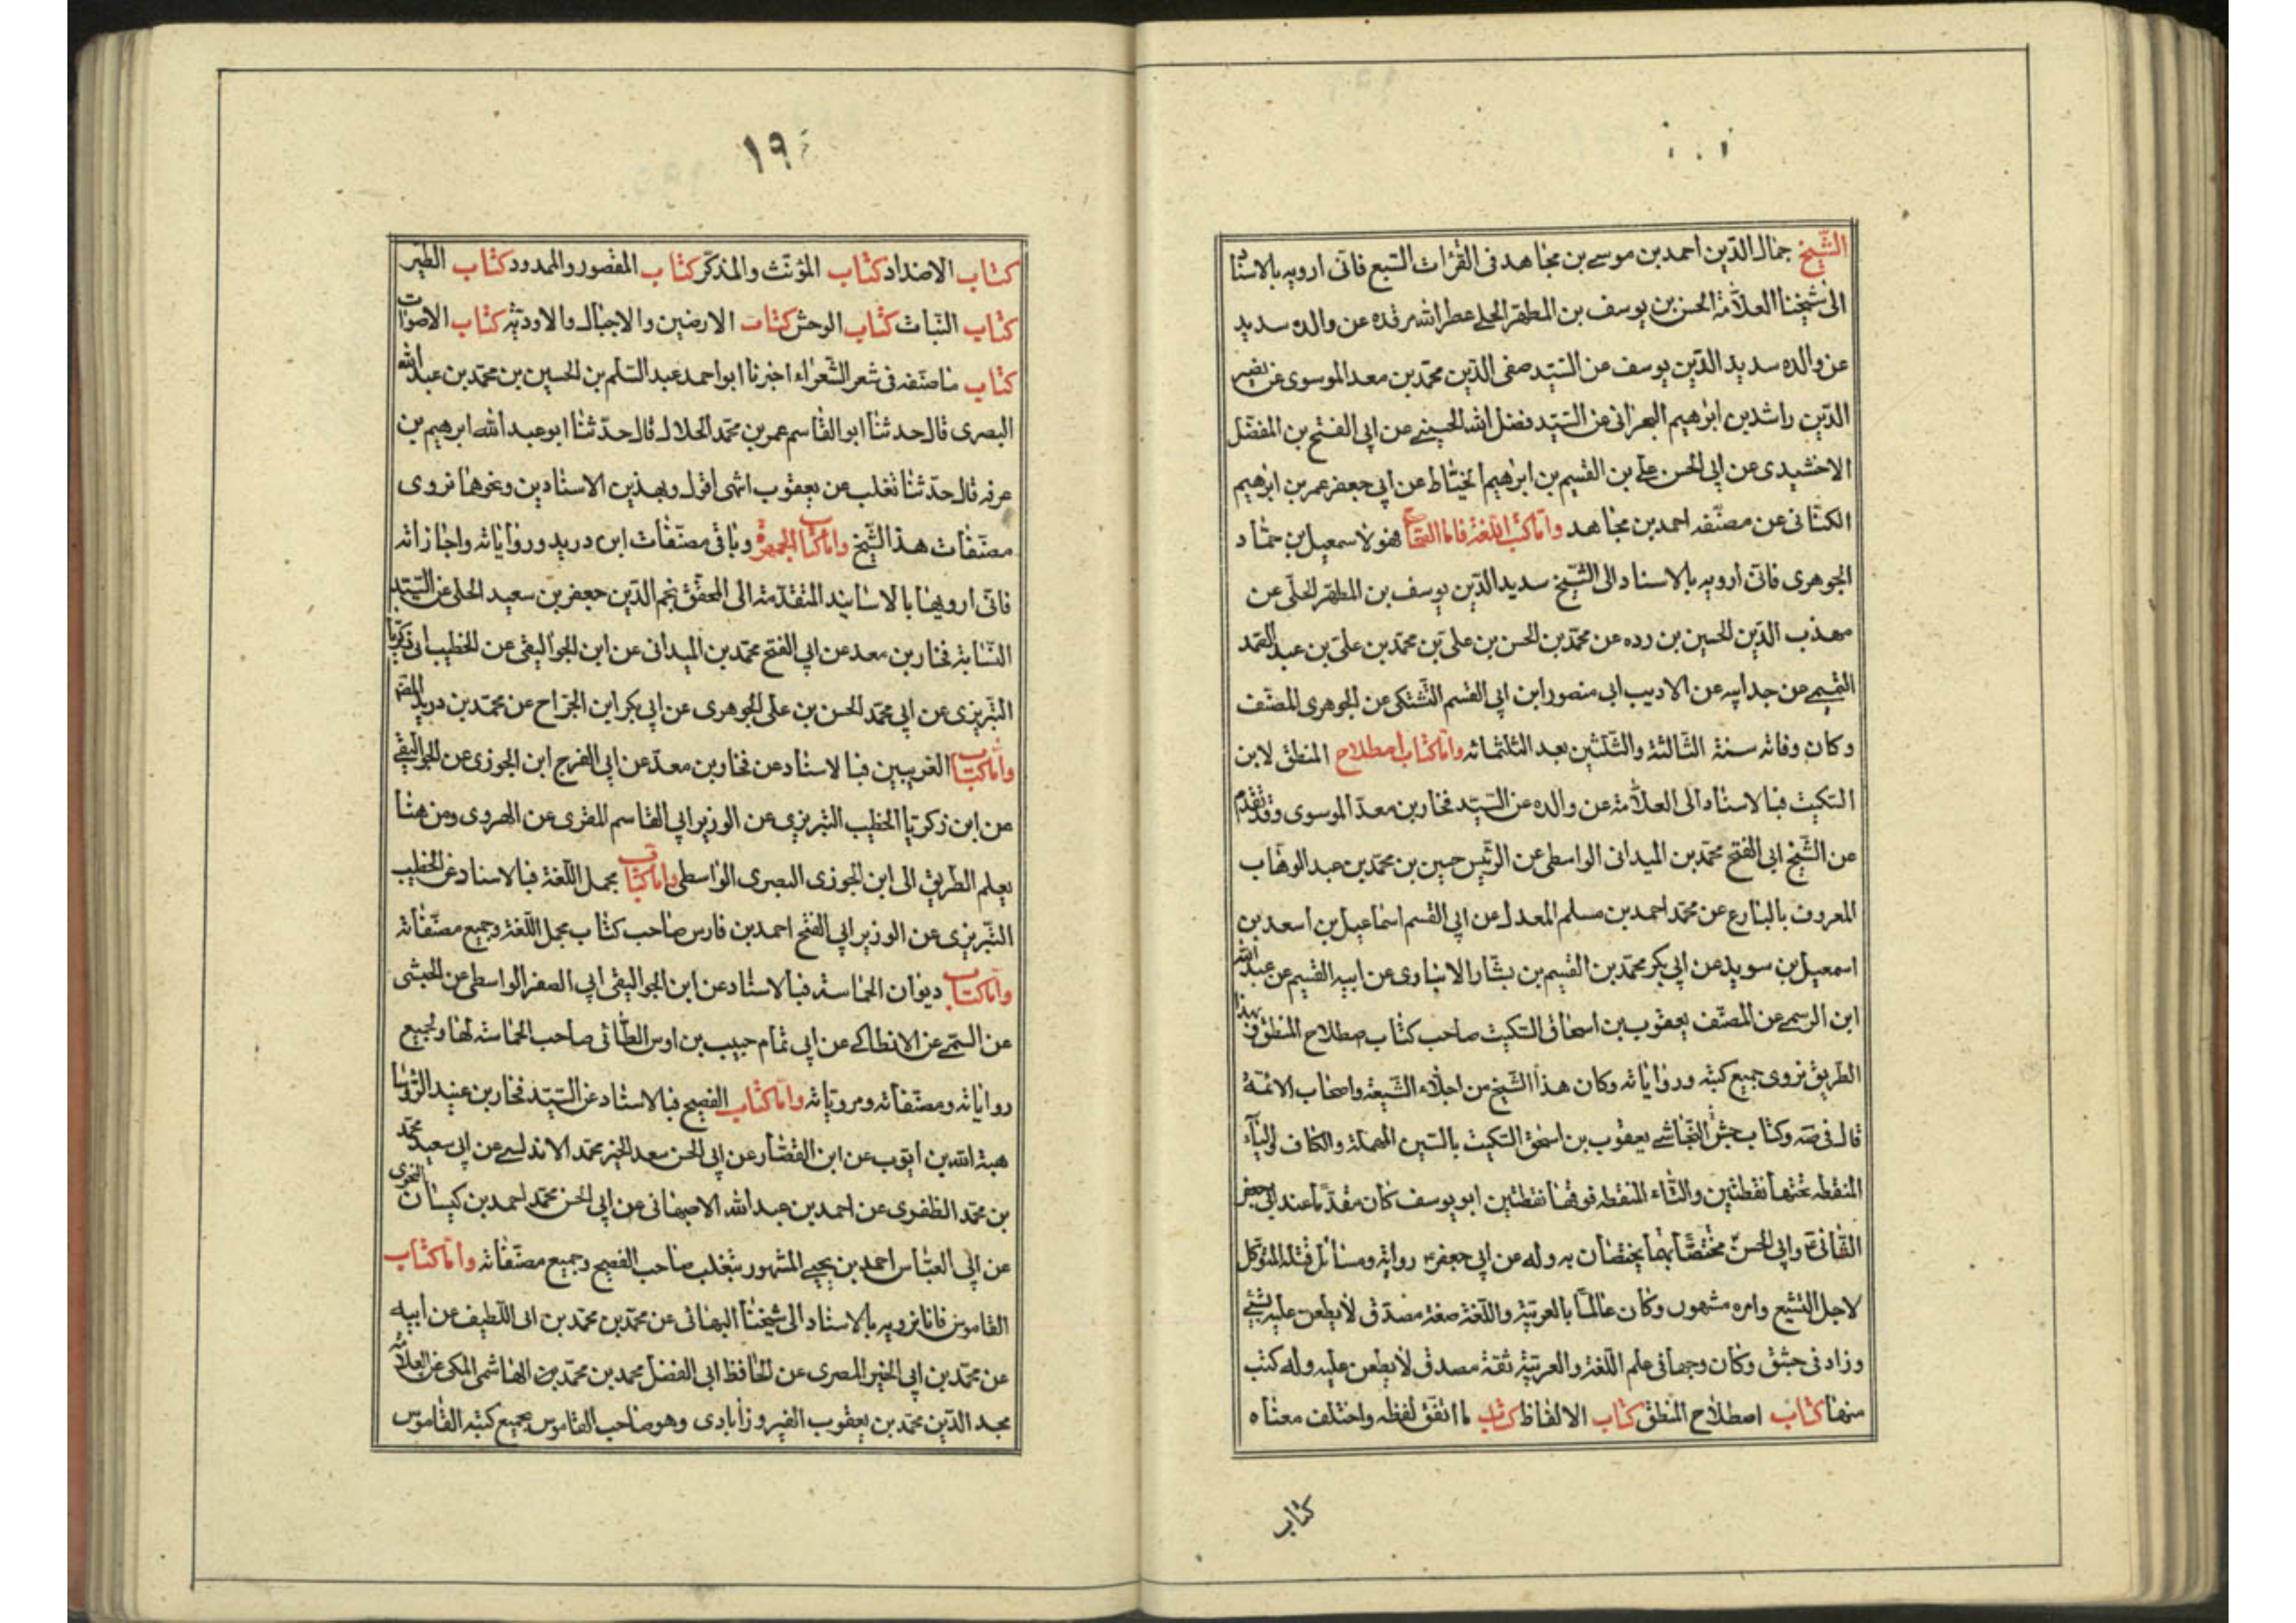 الشيخ جمال الدين احمد بن موسى بن مجاهد فى القرات السبع فانى ارويه بالاسناد
الى شيخنا العلامة الحسن بن يوسف بن المطهر الحلى عطر الله مرقده عن والده سديد
عن والده سديد الدين يوسف عن السيد صفى الدين محمد بن معد الموسوى عن نصير
الدين راشد بن ابرهيم البحرانى عن السيد فضل الله الحسينى عن ابى الفتح بن المفضل
الاخشيدى عن ابى الحسن على بن القسيم بن ابرهيم الخياط عن ابى جعفر عمر بن ابرهيم
الكتانى عن مصنفه احمد بن مجاهد واما كتب اللغة فاما الصحاح فهو لاسمعيل بن حماد
الجوهرى فانى ارويه بالاسناد الى الشيخ سديد الدين يوسف بن المطهر الحلى عن
مهذب الدين الحسين بن رده عن محمد بن الحسن بن على بن محمد بن على بن عبد الصمد
التميمى عن جد ابيه عن الاديب ابى منصور ابن ابى القسم عن الجوهرى المصنف
وكان وفاته سنة الثالثة والثلثين بعد الثلثمائه واما كتاب اصطلاح المنطق لابن
السكيت فبالاسناد الى العلامة عن والده عن السيد فخار بن معد الموسوى وقد تقدم
عن الشيخ ابى الفتح محمد بن الميدانى الواسطى عن الرئيس حسين بن محمد بن عبد الوهاب
المعروف بالبارع عن محمد احمد بن مسلم المعدل عن ابى القسم اسماعيل بن اسعد بن
اسمعيل بن سويد عن ابى بكر محمد بن القسيم بن بشار الانبارى عن ابيه القسيم عن عبد الله
ابن الرسمى عن المصنف يعقوب بن اسحاق السكيت صاحب كتاب صطلاح المنطق وبهذا
الطريق نروى جميع كتبه ورواياته وكان هذا الشيخ من اجلاء الشيعة واصحاب الائمة
قال فى صه وكتاب جش النجاشى يعقوب بن اسحق السكيت بالسين المهملة والكاف والياء
المنقطه تحتها نقطتين والتاء المنقطه فوقها نقطتين ابو يوسف كان مقدما عند ابى جعفر
الثانى ع وابى الحسن ع مختصا بهما يختصان به وله عن ابى جعفر ع رواية ومسائل قتله المتوكل
لاجل التشيع وامره مشهور وكان عالما بالعربية واللغة صغة مصدق لا يطعن عليه بشئ
وزاد فى جشق وكان وجها فى علم اللغة والعربية ثقة مصدق لا يطعن عليه وله كتب
منها كتاب اصطلاح المنطق كتاب الالفاظ كتاب ما اتفق لفظه واختلف معناه
كتاب
١٩
كتاب الاضداد كتاب المؤنث والمذكر كتاب المقصور والممدود كتاب الطير
كتاب النبات كتاب الوحش كتاب الارضين والاجبال والاودية كتاب الاصوات
كتاب ما صنفه فى شعر الشعراء اخبرنا ابو احمد عبد السلم بن الحسين بن محمد بن عبد الله
البصرى قال حدثنا ابو القاسم عمر بن محمد الحلال قال حدثنا ابو عبد الله ابرهيم بن
عرفه قال حدثنا ثغلب عن يعقوب انتهى اقول وبهذين الاسنادين ونحوهما نروى
مصنفات هذا الشيخ واما كتاب الجمهرة وباقى مصنفات ابن دريد ورواياته واجازاته
فانى ارويها بالاسانيد المتقدمة الى المحقق نجم الدين جعفر بن سعيد الحلى عن السيد
النسابة فخار بن معد عن ابى الفتح محمد بن الميدانى عن ابن الجواليقى عن الخطيب ابى زكريا
التبريزى عن ابى محمد الحسن بن على الجوهرى عن ابى بكر ابن الجراح عن محمد بن دريد المصنف
واما كتاب الغريبين فبالاسناد عن فخار بن معد عن ابى الفرج ابن الجوزى عن الجواليقى
عن ابن زكريا الخطيب التبريزى عن الوزير ابى القاسم المغرى عن الهروى ومن هنا
يعلم الطريق الى ابن الجوزى البصرى الواسطى واما كتاب مجمل اللغة فبالاسناد عن الخطيب
التبريزى عن الوزير ابى الفتح احمد بن فارس صاحب كتاب مجمل اللغة وجميع مصنفاته
واما كتاب ديوان الحماسة فبالاسناد عن ابن الجواليقى ابى الصقر الواسطى عن الحبشى
عن التمى عن الانطاكى عن ابى تمام حبيب بن اوس الطائى صاحب الحماسه لها ولجميع
رواياته ومصنفاته ومروياته واما كتاب الفصيح فبالاسناد عن السيد فخار بن عنيد الرؤسا
هبة الله بن ايوب عن ابن القصار عن ابى الحسن سعد الخير محمد الاندلسى عن ابى سعيد محمد
بن محمد الظفرى عن احمد بن عبد الله الاصبهانى عن ابى الحسن محمد احمد بن كيسان النحوى
عن ابى العباس احمد بن يحيى المشهور بثغلب صاحب الفصيح وجميع مصنفاته واما كتاب
القاموس فانا نرويه بالاسناد الى شيخنا البهائى عن محمد بن محمد بن ابى اللطيف عن ابيه
عن محمد بن ابى الخير المصرى عن الحافظ ابى الفضل محمد بن محمد بن الهاشمى المكى عن العلامة
مجد الدين محمد بن يعقوب الفيروزابادى وهو صاحب القاموس بجميع كتبه القاموس